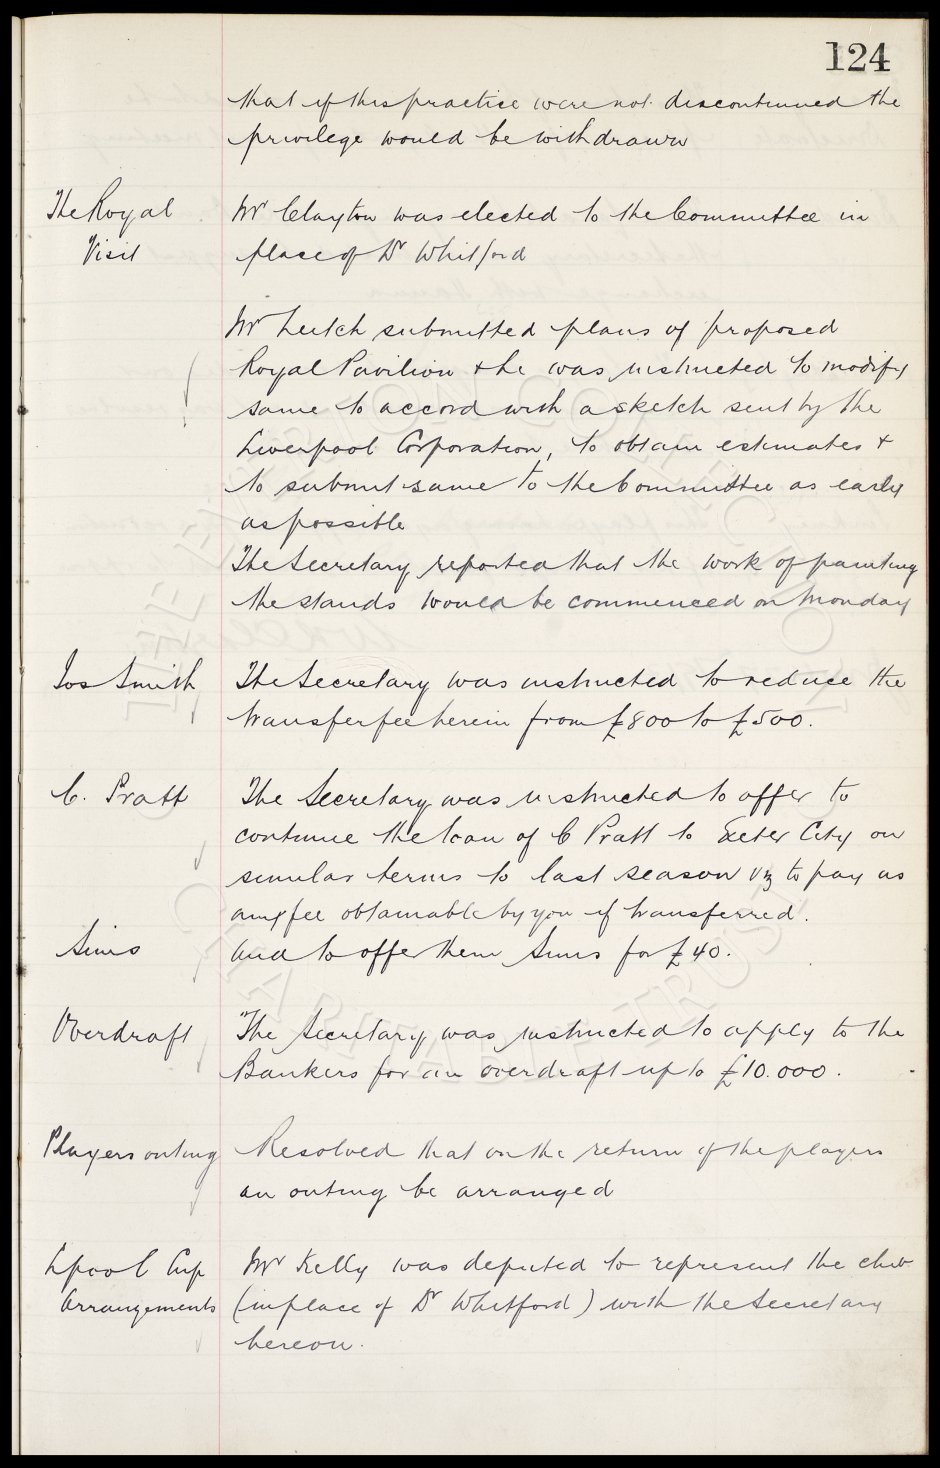 124
that if this practice were not discontinued the
privilege would be withdrawn
The Royal
Visit
Mr Clayton was elected to the Committee in
place of Dr Whitford
Mr Leitch submitted plans of proposed
Royal Pavilion & he was instructed to modify
same to accord with a sketch sent by the
Liverpool Corporation, to obtain estimates &
to submit same to the Committee as early
as possible
The Secretary reported that the work of painting
the stands would be commenced on Monday
Jos Smith
The Secretary was instructed to reduce the
transfer fee herein from £800 to £500.
C. Pratt
The Secretary was instructed to offer to
continue the loan of C Pratt to Exeter City on
similar terms to last season viz to pay us
any fee obtainable by you if transferred.
Sims
And to offer them Sims for £40.
Overdraft
The Secretary was instructed to apply to the
Bankers for an overdraft up to £10.000.
Players outing
Resolved that on the return of the players
an outing be arranged
Lpool Cup
Arrangements
Mr Kelly was deputed to represent the club
(in place of Dr Whitford) with the Secretary
hereon.